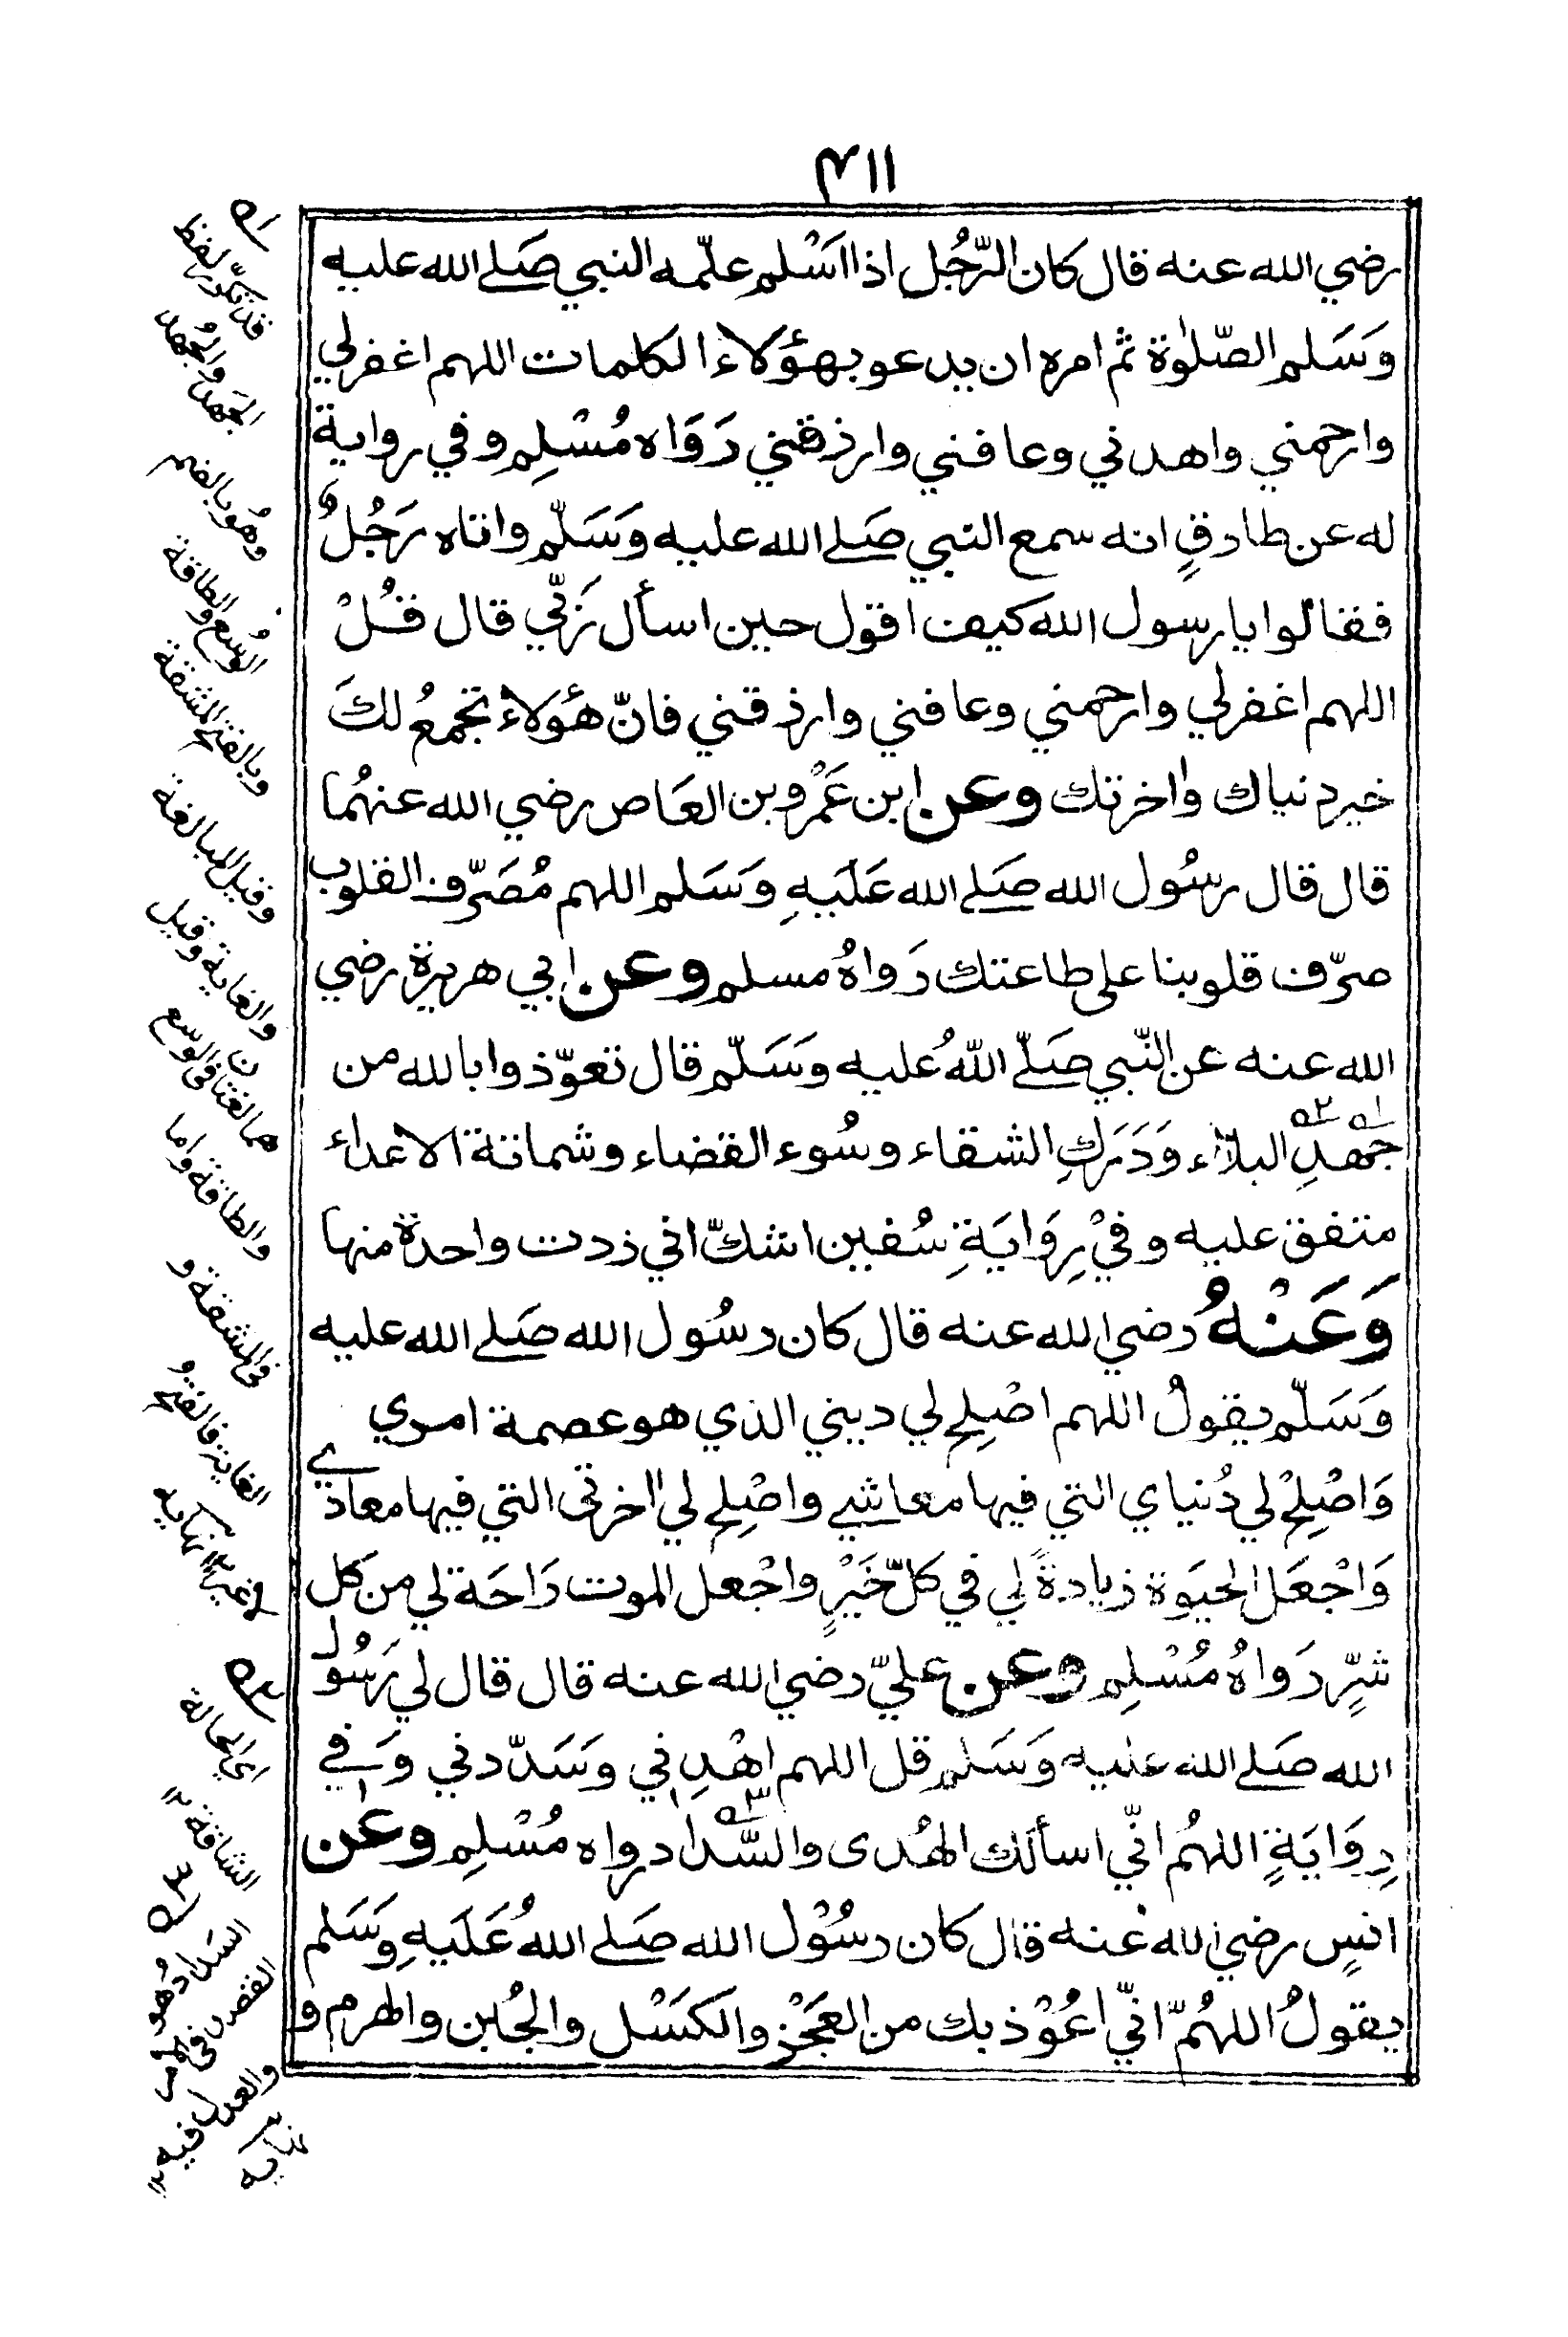 ٤١١
رضي الله عنه قال كان الرّجُل اذا اسْلم علّمه النبي صَلے الله عليه
وَسَلم الصّلٰوة ثم امره ان يدعو بهؤلاء الكلمات اللهم اغفرلي
وارحمني واهدني وعافني وارزقني رَوَاه مُسْلِم وفي رواية
له عن طارقٍ انه سمع النبي صَلے الله عليه وَسَلّم واتاه رَجُلٌ
فقالوا يا رسول الله كيف اقول حين اسأل رَبّي قال قُلْ
اللهم اغفرلي وارحمني وعافني وارزقني فانّ هؤلاء تجمعُ لكَ
خير دنياك واٰخرتك وعن ابن عَمْرو بن العَاص رضي الله عنهُما
قال قال رسُول الله صَلے الله عَلَيهِ وَسَلم اللهم مُصَرّف القلوب
صرّف قلوبنا على طاعتك رَواهُ مسلم وعن ابي هريرة رضي
الله عنه عن النّبي صَلّے اللّهُ عليه وَسَلّم قال تعوّذوا بالله من
جهدِ البلاٰء وَدَرَكِ الشقاء وسُوء القضاء وشماتة الاعداء
متفق عليه وفيْ رِوَايَةِ سُفين اشكّ اني زدت واحدة منها
وَعَنْهُ رضي الله عنه قال كان رسُول الله صَلے الله عليه
وَسَلّم يقولُ اللهم اصْلِح لي ديني الذي هو عصمة امري
وَاصْلِحْ لي دُنياي التي فيها معاشي واصْلِح لي اٰخرتى التي فيها معادي
وَاجْعَل الحيَوة زيادةً لي في كلّ خَيْرٍ واجْعل الموت رَاحَة لي من كل
شرٍّ رَواهُ مُسْلِم وعن عليّ رضي الله عنه قال قال لي رَسُول
الله صَلے الله عليه وَسَلم قل اللهم اهْدِني وَسَدّدني وَفي
رِوَايَةٍ اللهُم انّي اسألك الهُدى والسَّداد رواه مُسْلِم وعن
انسٍ رضي الله عنه قال كان رسُوْل الله صَلے اللهُ عَلَيهِ وَسَلم
يقولُ اللهُمّ انّي اعُوْذ بك من العَجْز والكَسَْل والجُبن والهرم و
قد تكرّر لفظ
الجَهد والجُهد
وهُو بالضم
الوُسع والطاقة
وبالفتح المشقة
وقيل المبالغة
والغاية وقيل
هما لغتان في الوسع
والطاقة واما
في المشقة و
الغاية فالفتح و
غير ١٢ نهايه
اي الحالة
الشاقة ١٢
السداد هو
القصد في الامر
والعدل فيه ١٢
نهايه